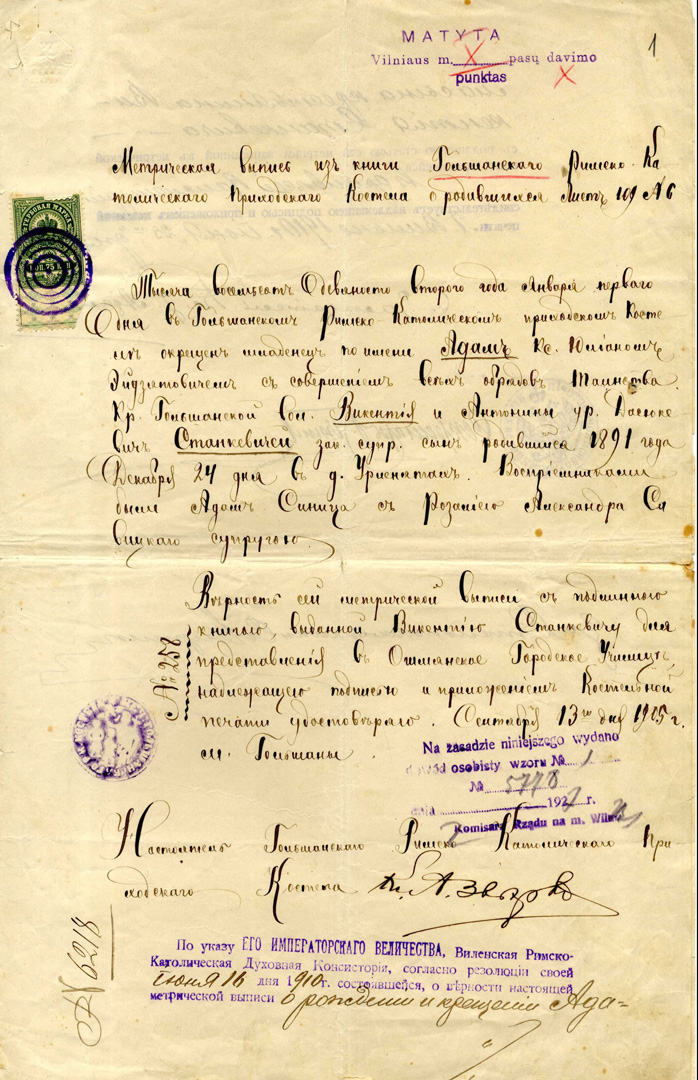 MATYTA
1
Vilniaus m. X pasų davimo
punktas
Метрическая выпись изъ книги Гольшанскаго Римско-Ка
толическаго Приходскаго Костела о родившихся Листъ 109 № 6
Тысяча восемьсотъ Девяносто второго года Января перваго
Дня въ Гольшанскомъ Римско-Католическомъ приходскомъ Косте
лѣ окрещенъ младенецъ по имени Адамъ Кс. Юліаномъ
съ совершеніемъ всѣхъ обрядовъ Таинства.
Кр. Гольшанской вол. Викентія и Антонины ур. Васюке
вичъ Станкевичей зак. супр. сынъ родившійся 1891 года
Декабря 24 дня въ д. Воспріемниками
были Адамъ Синица съ Розаліею Александра Са
вицкаго супругою.
Вѣрность сей метрической выписи съ подлинною
книгою, выданной Викентію Станкевичу для
№ 258
представленія въ Ошмянское Городское Училище,
надлежащею подписью и приложеніемъ Костельной
печати удостовѣряю. Сентября 13го дня 1905 г.
м. Гольшаны.
Na zasadzie niniejszego wydano
dowód osobisty wzoru № 1
№ 5778
dnia 192 r.
Komisarz Rządu na m. Wilno
Настоятель Гольшанскаго Римско Католическаго При
ходскаго Костела
№ 6218
По указу ЕГО ИМПЕРАТОРСКАГО ВЕЛИЧЕСТВА, Виленская Римско-
Католическая Духовная Консисторія, согласно резолюціи своей
Іюня 16 дня 1910 г. состоявшейся, о вѣрности настоящей
метрической выписи о рожденіи и крещеніи Ада-